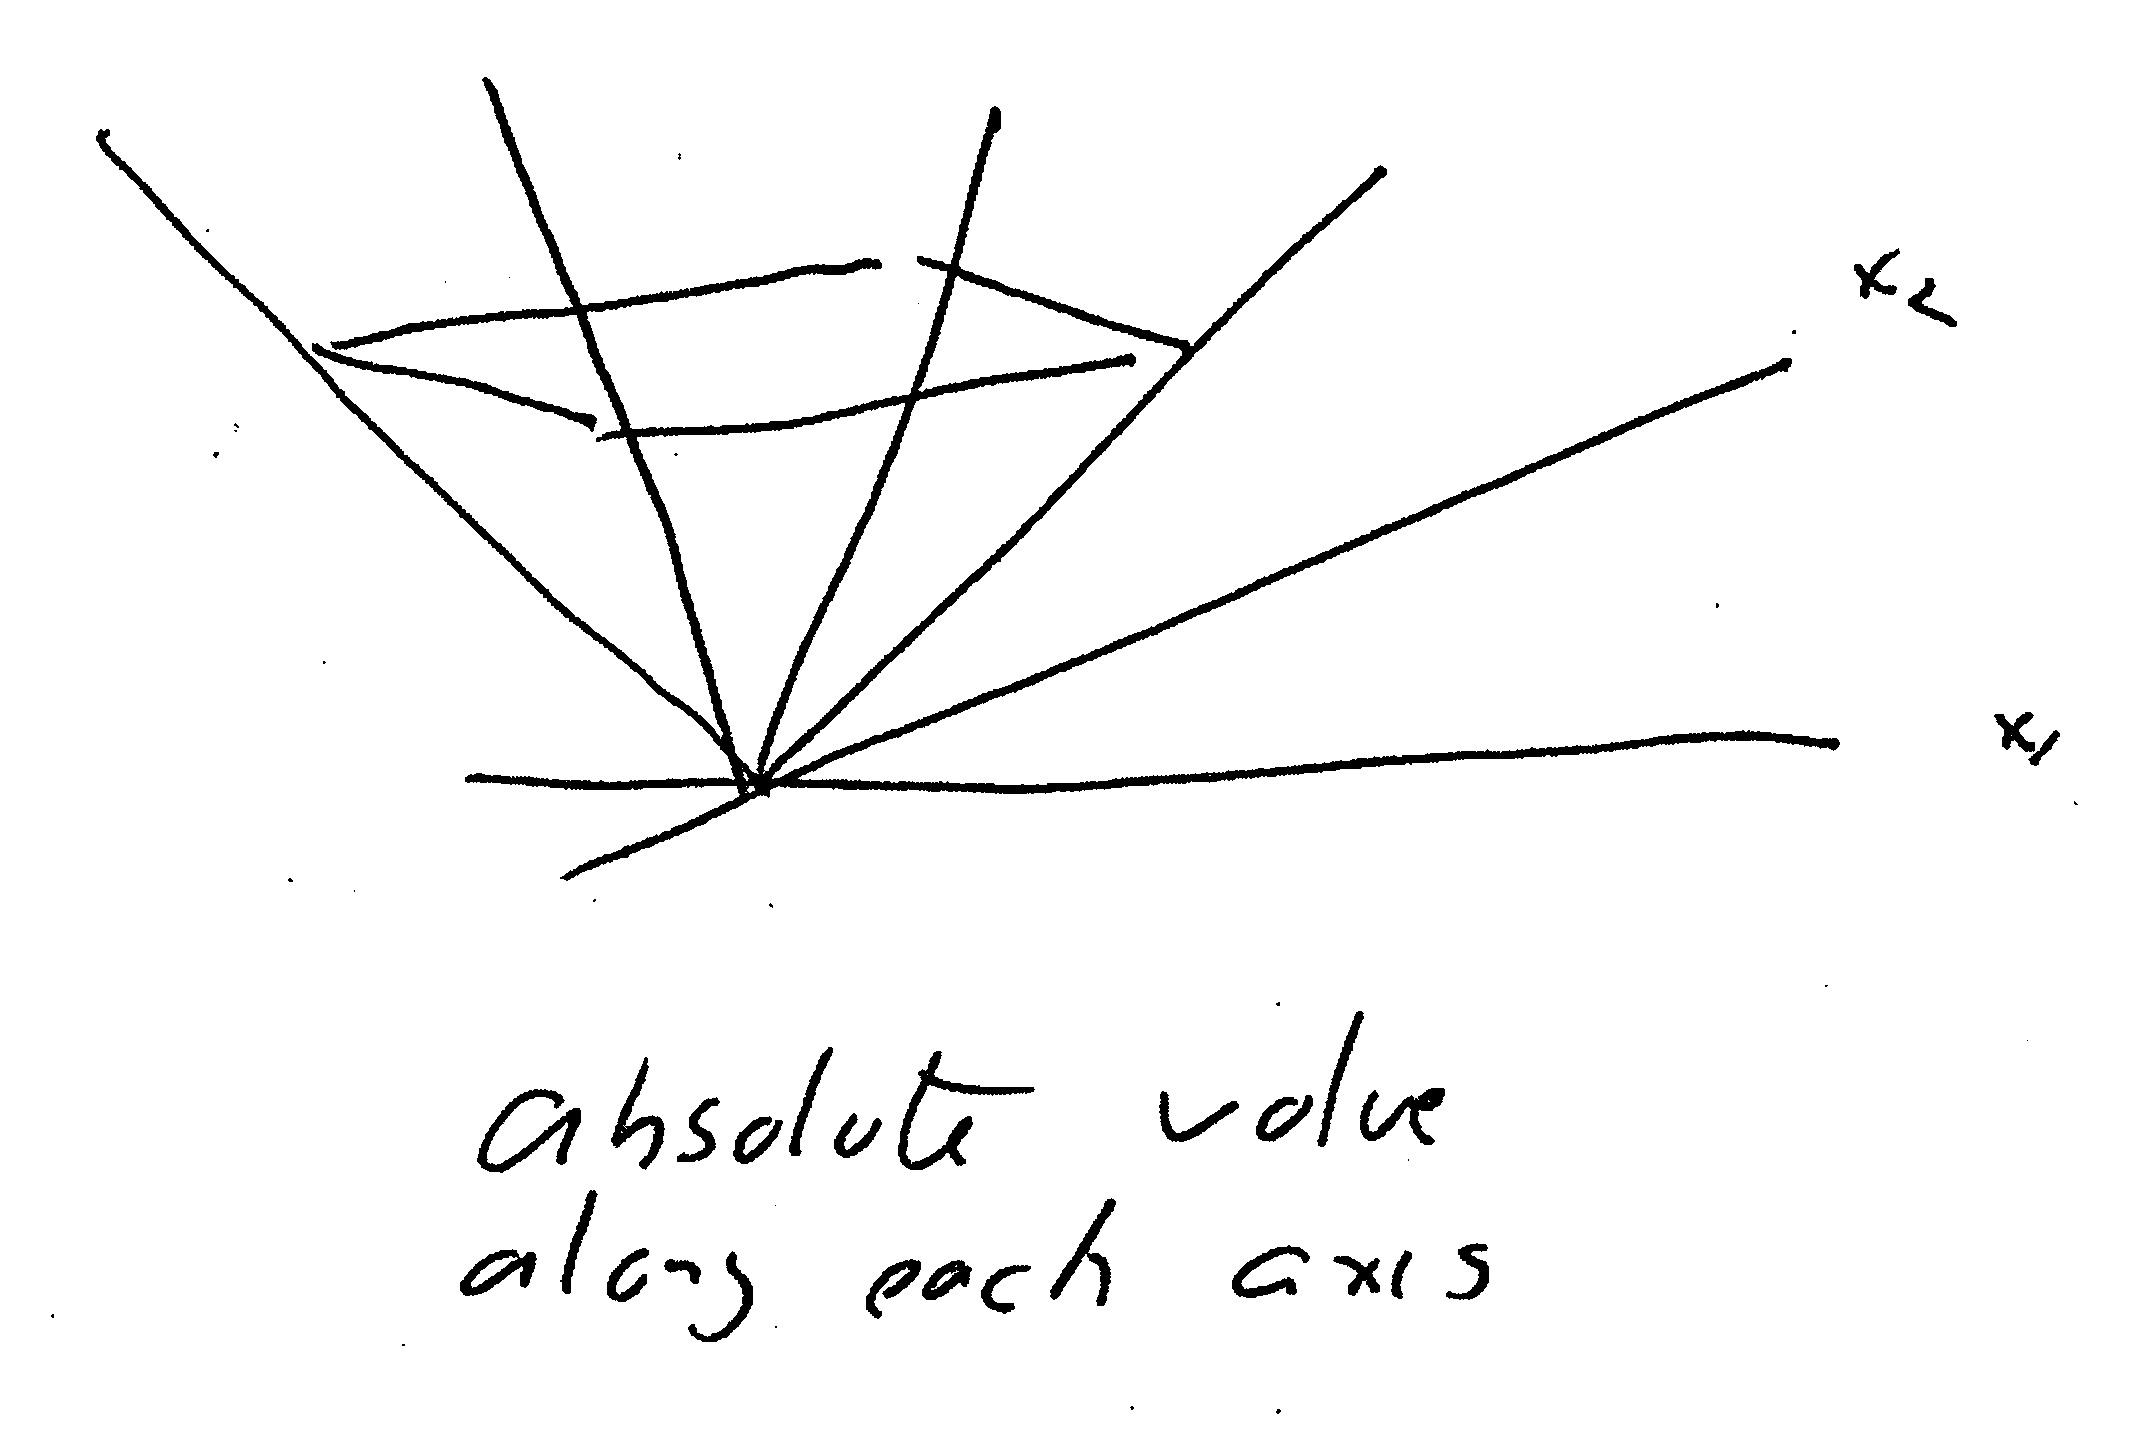 x₂
x₁
absolute value
along each axis